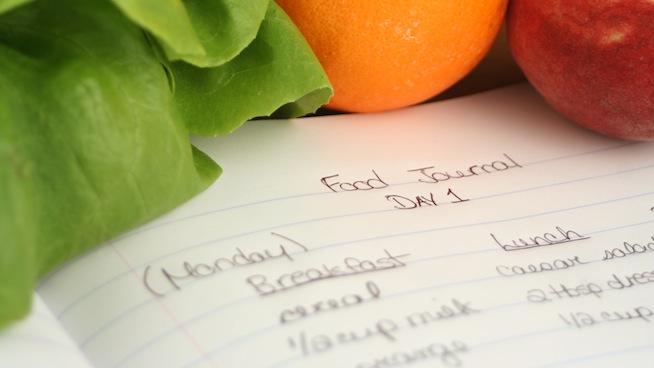 Food Journal
DAY 1
(Monday)
Breakfast
cereal
1/2 cup milk
orange
Lunch
caesar salad
2 tbsp
1/2 cup